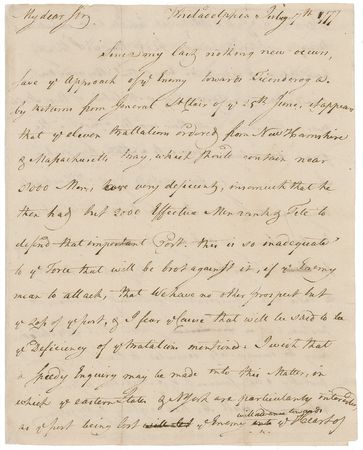 My dear Sir, Philadelphia July 7th 1777
Since my last nothing new occurs,
save ye Approach of ye Enemy towards Ticonderoga.
by returns from General St Clair of ye 25th June, it appears
that ye eleven Battalions ordered from New Hampshire
& Massachusetts Bay, which should contain near
8000 Men, were very deficient, insomuch that he
then had but 2000 Effective Men rank & File to
defend that important Post. this is so inadequate
to ye Force that will be brot against it, if ye Enemy
mean to attack, that We have no other prospect but
ye Loss of ye post, & I fear ye Cause that will be said to be
ye Deficiency of ye Battalions mentioned. I wish that
a Speedy Enquiry may be made into this Matter, in
which ye eastern States & N York are particularly interested
will advance towards
as ye post being lost ye Enemy ye Heart of